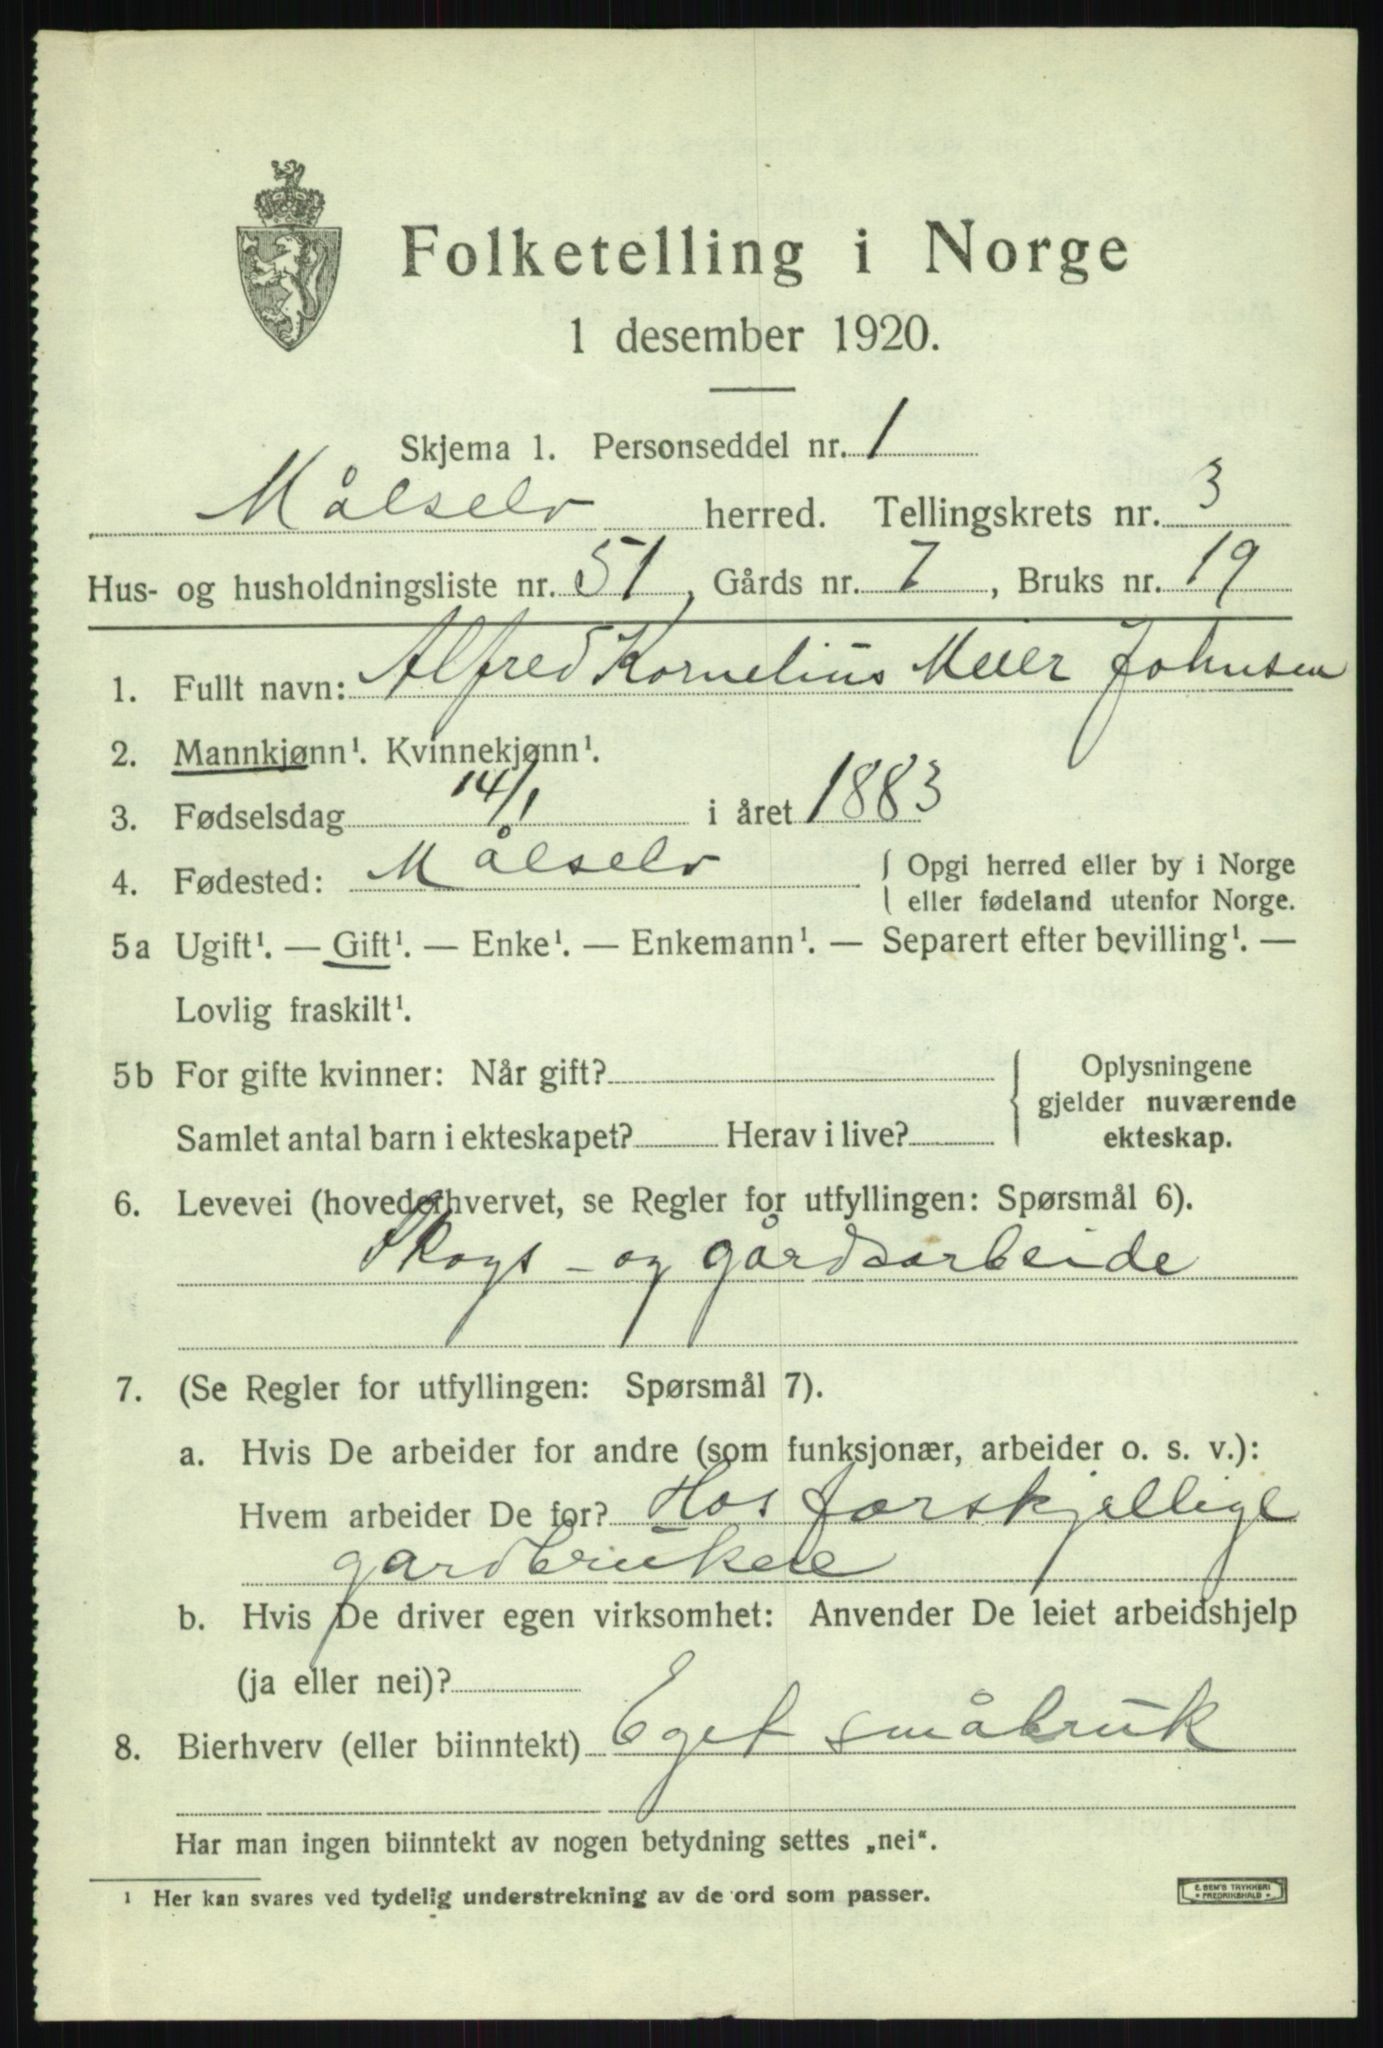 Folketelling i Norge
1 desember 1920.
Skjema 1. Personseddel nr. 1
Målselv herred. Tellingskrets nr. 3
Hus- og husholdningsliste nr. 51, Gårds nr. 7, Bruks nr. 19
1. Fullt navn: Alfred Kornelius Meier Johnsen
2. Mannkjønn¹. Kvinnekjønn¹.
3. Fødselsdag 14/1 i året 1883
4. Fødested: Målselv { Opgi herred eller by i Norge
eller fødeland utenfor Norge.
5a Ugift¹. — Gift¹. — Enke¹. — Enkemann¹. — Separert efter bevilling¹. —
Lovlig fraskilt¹.
5b For gifte kvinner: Når gift? { Oplysningene
gjelder nuværende
Samlet antal barn i ekteskapet? Herav i live? ekteskap.
6. Levevei (hovederhvervet, se Regler for utfyllingen: Spørsmål 6).
Skogs- og gårdsarbeide
7. (Se Regler for utfyllingen: Spørsmål 7).
a. Hvis De arbeider for andre (som funksjonær, arbeider o. s. v.):
Hvem arbeider De for? Hos forskjellige
gardbrukere
b. Hvis De driver egen virksomhet: Anvender De leiet arbeidshjelp
(ja eller nei)?
8. Bierhverv (eller biinntekt) Eget småbruk
Har man ingen biinntekt av nogen betydning settes „nei“.
¹ Her kan svares ved tydelig understrekning av de ord som passer.
E. SEM'S TRYKKERI
FREDRIKSHALD